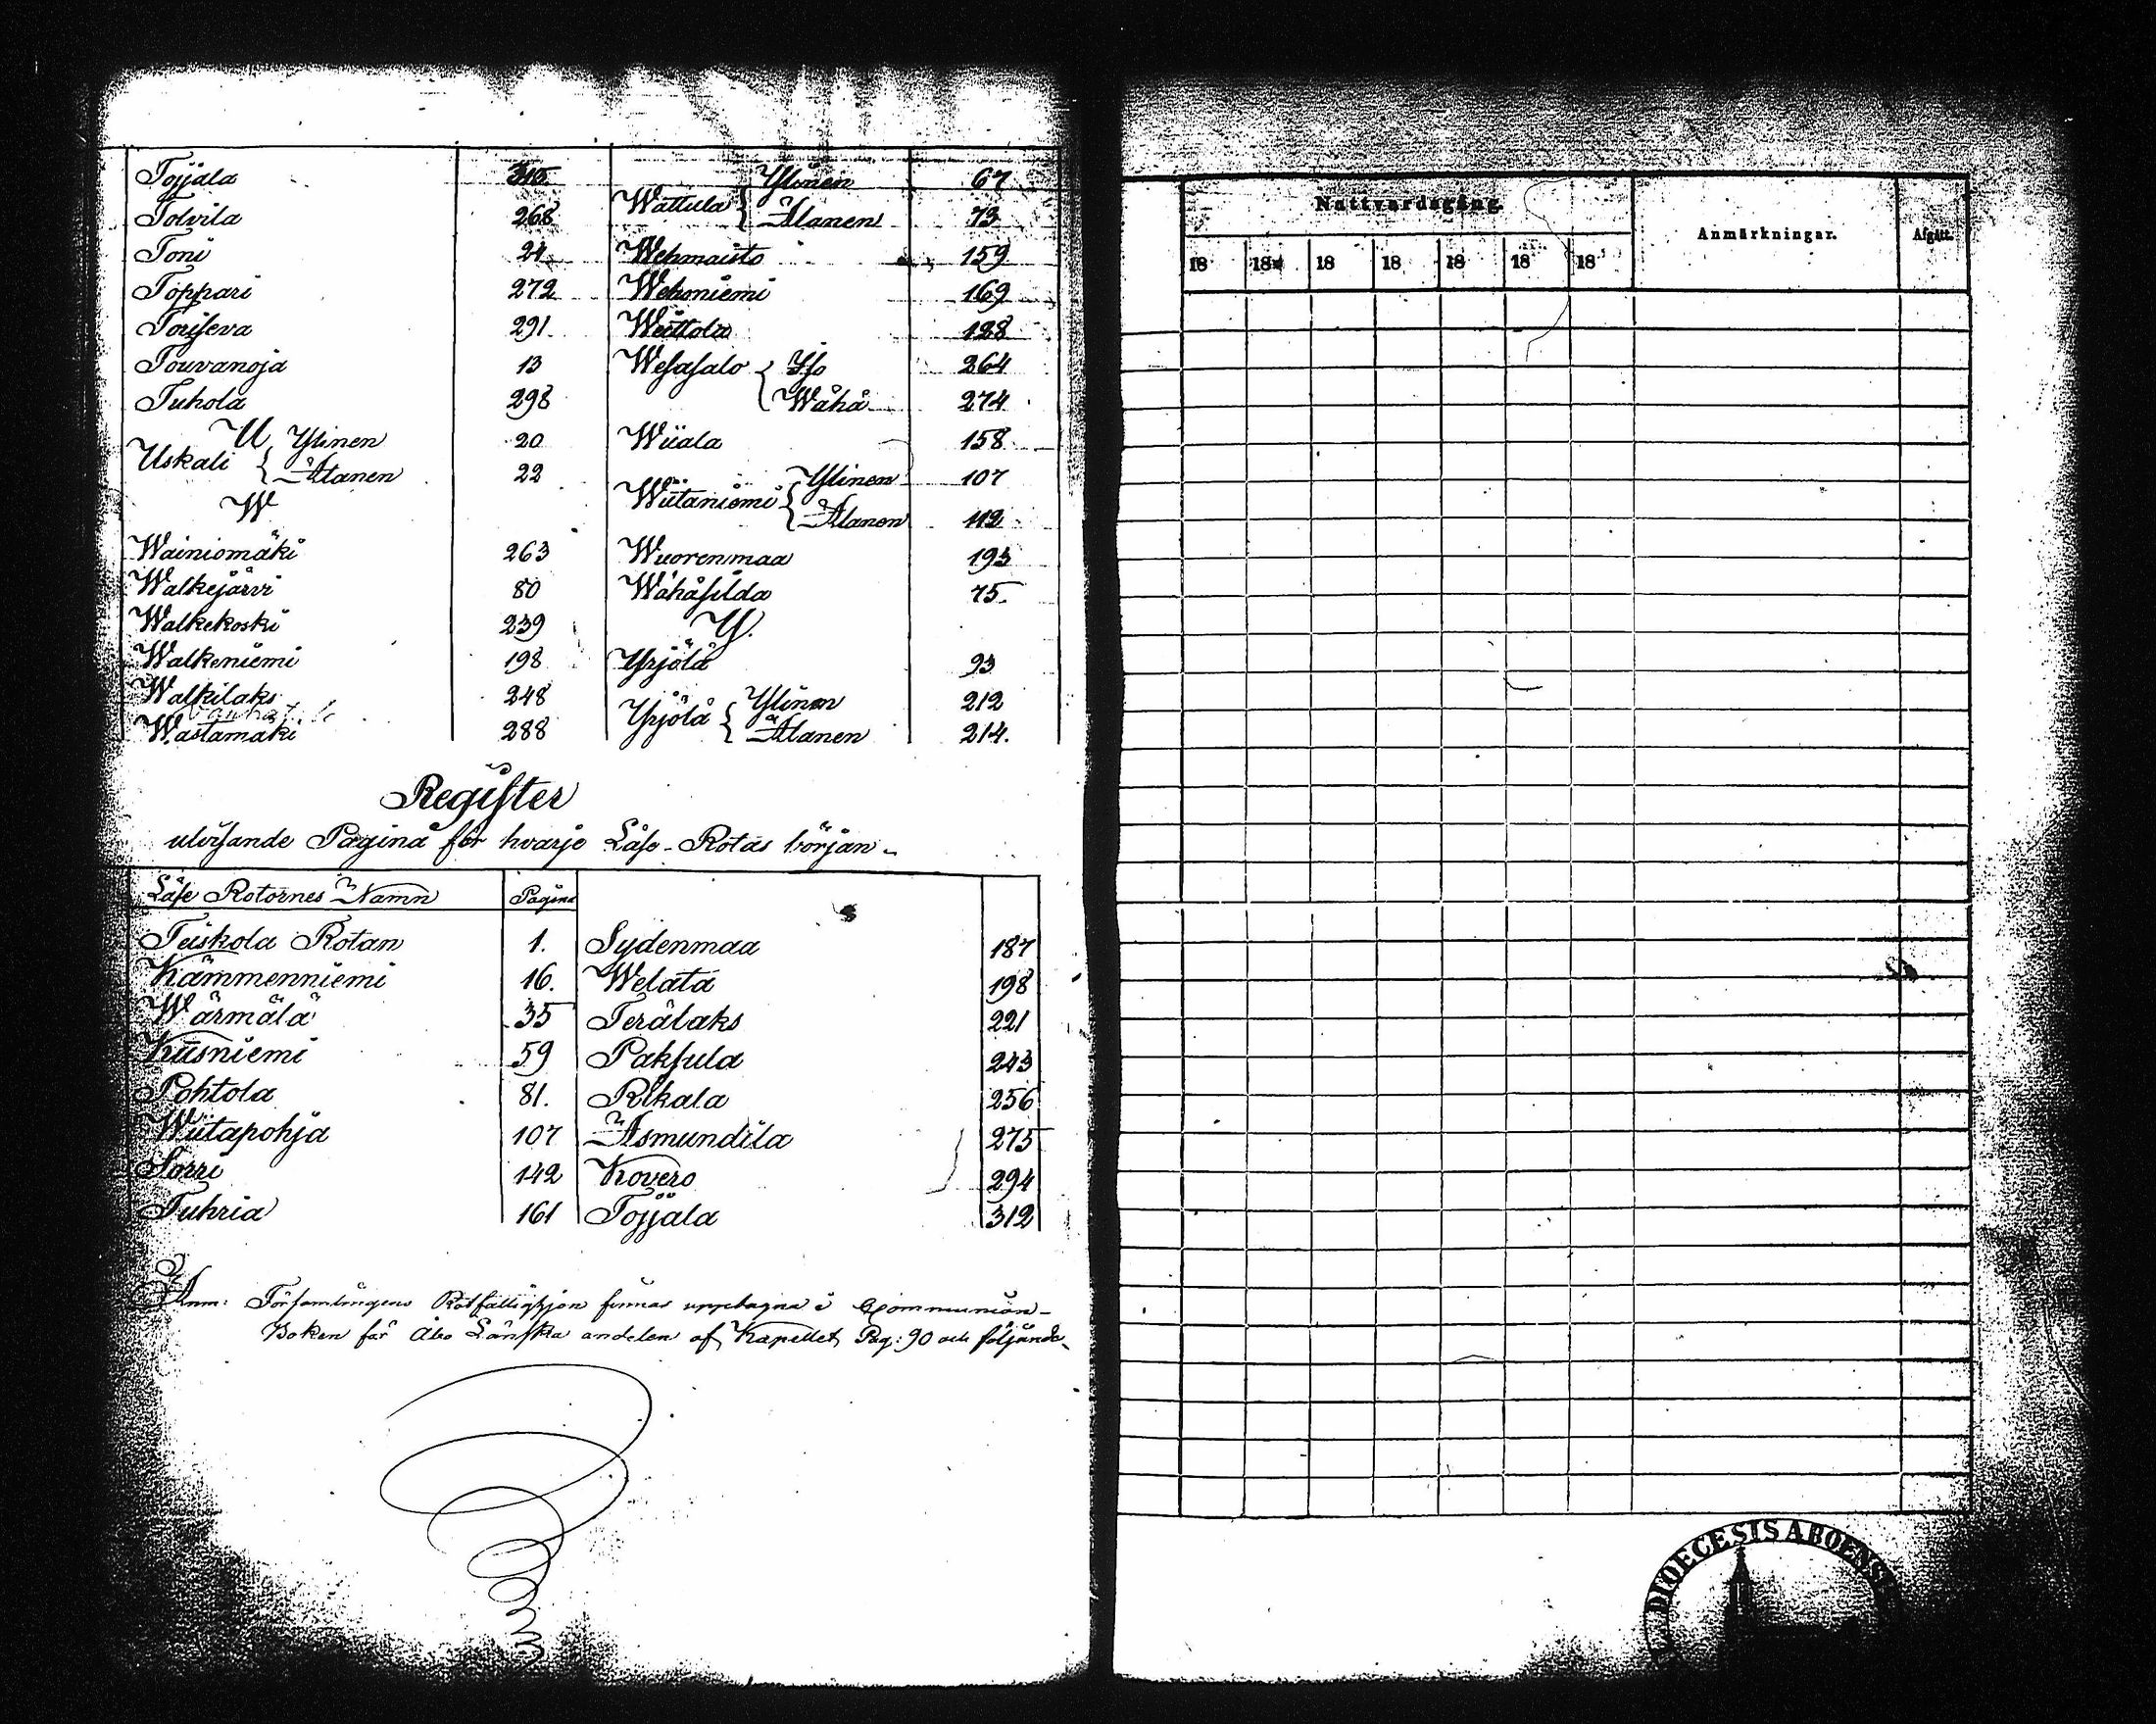 Tojjala 315
Tolvila 268
Toni 24
Toppari 272
Toriseva 291
Touvanoja 13
Tuhola 298
U
Uskali { Ylinen 20
Alanen 22
W
Wainiomäki 263
Walkejärvi 80
Walkekoski 239
Walkeniemi 198
Walkilaks 248
Wastamäki 288
Wattula { Ylönen 67
Alanen 73
Wehmaisto 159
Wehoniemi 169
Weittola 128
Wesasalo { Iso 264
Wähä 274
Wiiala 158
Wiitaniemi { Ylinen 107
Alanen 112
Wuorenmaa 193
Wähäsilda 75
Y.
Yrjölä 93
Yrjölä { Ylinen 212
Alanen 214.
Register
utvisande Pagina för hvarje Läse-Rotas början.
Läse Rotornes Namn Pagina
Teiskola Rotan 1.
Kämmenniemi 16.
Wärmälä 35
Kiisniemi 59
Pohtola 81.
Wiitapohja 107
Sorri 142
Tuhria 161
Sydenmaa 187
Welata 198
Terälaks 221
Paksula 243
Rikala 256
Asmundila 275
Kovero 294
Tojjala 312
Anm: Församlingens Rotfattighjon finnas upptagna i Communion-
Boken för Åbo Länska andelen af Kapellet Pag: 90 och följande.
Nattvardsgång.
Anmärkningar.
Afgått.
18 18 18 18 18 18 18
DIOECESIS ABOENS